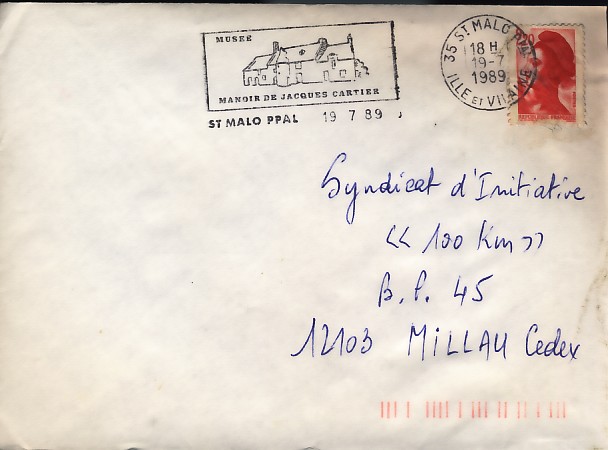 MUSEE
MANOIR DE JACQUES CARTIER
ST MALO PPAL 19 7 89
35 ST MALO PPAL
18 H
19-7
1989
ILLE ET VILAINE
Syndicat d'Initiative
<< 100 Km >>
B.P. 45
12103 MILLAU Cedex